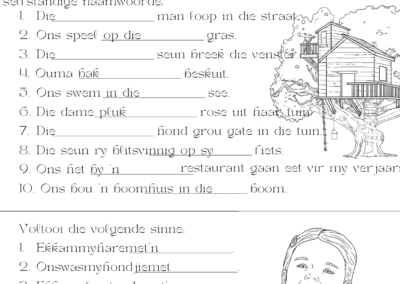 selfstandige naamwoorde.
1. Die__________ man loop in die straat.
2. Ons speel op die__________ gras.
3. Die__________ seun breek die venster.
4. Ouma bak__________ beskuit.
5. Ons swem in die__________ see.
6. Die dame pluk__________ rose uit haar tuin.
7. Die__________ hond grou gate in die tuin.
8. Die seun ry blitsvinnig op sy__________ fiets.
9. Ons het by 'n__________ restaurant gaan eet vir my verjaars
10. Ons bou 'n boomhuis in die__________ boom.
Voltooi die volgende sinne:
1. Ekkammyharemet'n__________.
2. Onswasmyhondjiemet__________.